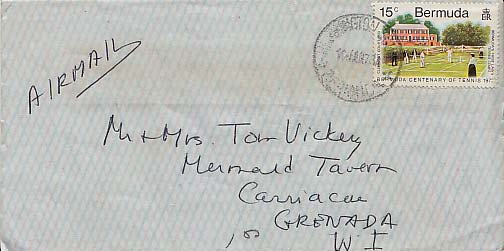 15c Bermuda
BERMUDA CENTENARY OF TENNIS 197
AIRMAIL
Mr & Mrs. Tom Vickery
Mermaid Tavern
Carriacou
GRENADA
W I